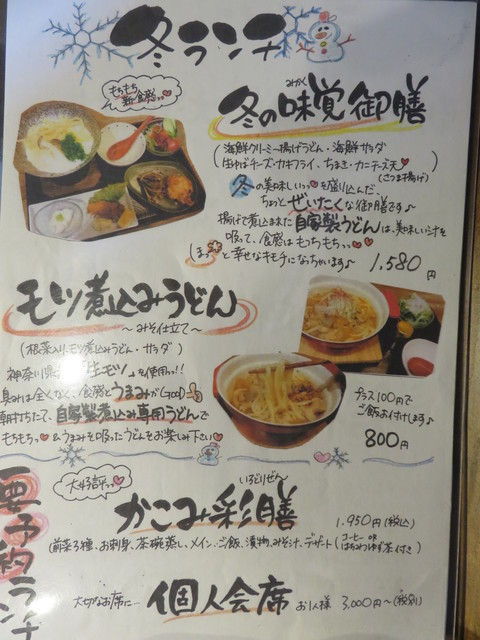 冬ランチ
もちもち
新食感
みかく
冬の味覚御膳
(海鮮クリーミー揚げうどん・海鮮サラダ
生ゆばチーズ・カキフライ、ちまき・カニチーズ天)
(さつま揚げ)
冬の美味しいっを盛り込んだ、
ちょっとぜいたくな御膳です♪
揚げて煮込まれた自家製うどんは、美味しい汁を
吸って、食感はもっちもちっ
ほっと幸せなキモチになっちゃいます♪
1,580円
モツ煮込みうどん
～みそ仕立て～
(根菜入りモツ煮込みうどん・サラダ)
神奈川県 生モツ を使用っ!!
臭みは全くなく、食感とうまみがGOOD
朝打ちたて、自家製煮込み専用うどんで
もちもちっ&うまみを吸ったうどんをお楽しみ下さい
プラス100円で
ご飯お付けします♪
800円
大好評っ
いろどりぜん
かこみ彩膳
1,950円(税込)
前菜3種、お刺身、茶碗蒸し、メイン、ご飯、漬物、みそ汁、デザート(コーヒー or はちみつゆず茶付き)
要予約ランチ
大切なお席に…
個人会席
お1人様 3,000円～(税別)